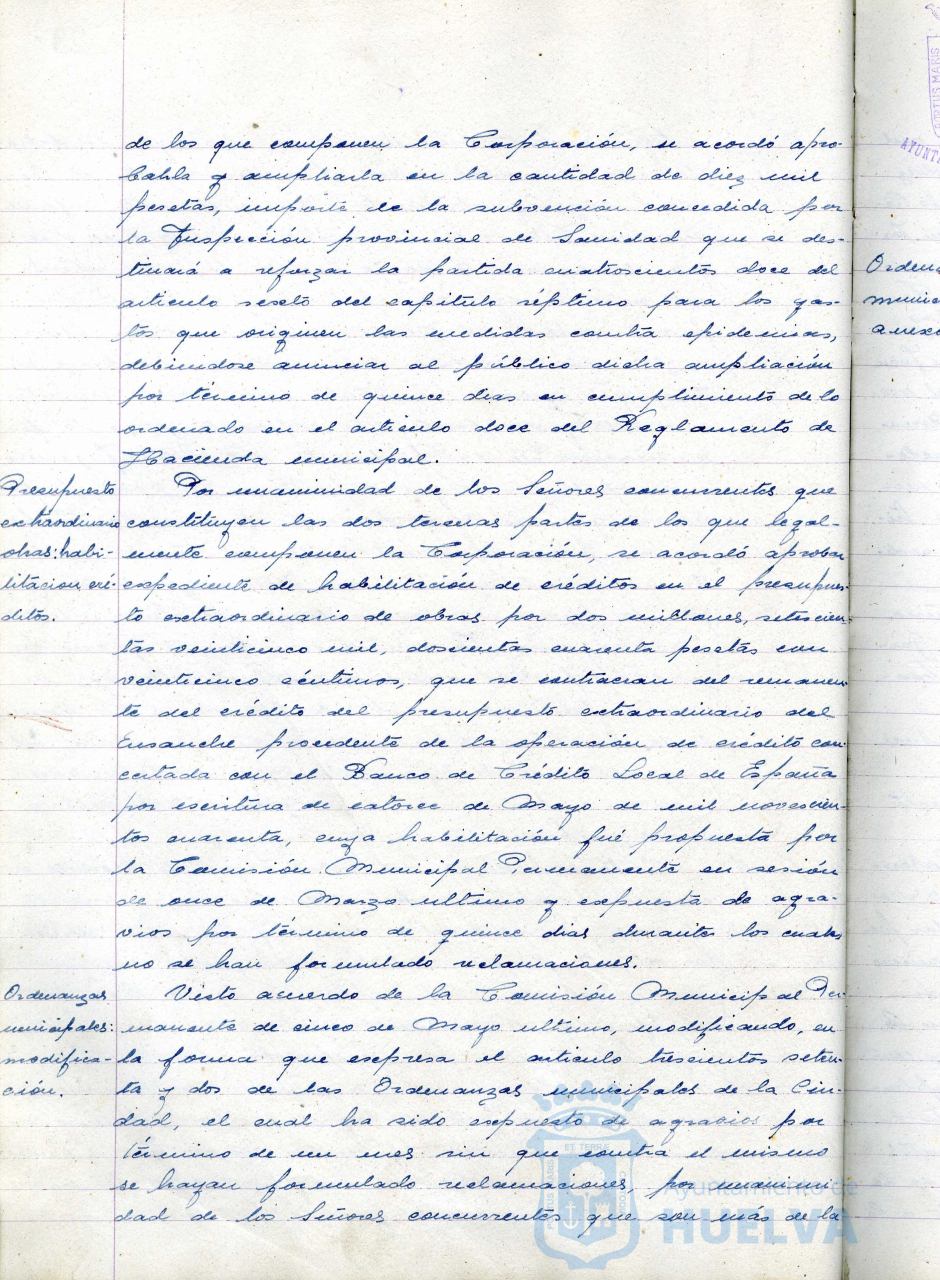 de los que componen la Corporación, se acordó apro-
barla y ampliarla en la cantidad de diez mil
pesetas, importe de la subvención concedida por
la Inspección provincial de Sanidad que se des-
tinará a reforzar la partida cuatroscientos doce del
articulo sexto del capitulo séptimo para los gas-
tos que originen las medidas contra epidemias,
debiendose anunciar al público dicha ampliación
por término de quince dias en cumplimiento de lo
ordenado en el articulo doce del Reglamento de
Hacienda municipal.
Presupuesto
extraordinario
obras: habi-
litacion cré-
ditos.
Por unanimidad de los Señores concurrentes que
constituyen las dos terceras partes de los que legal-
mente componen la Corporación, se acordó aprobar
expediente de habilitación de créditos en el presupues-
to extraordinario de obras por dos millones, setecien-
tas veinticinco mil, doscientas cuarenta pesetas con
veinticinco céntimos, que se contraeran del remanen-
te del crédito del presupuesto extraordinario del
Ensanche procedente de la operación de crédito con-
certada con el Banco de Crédito Local de España
por escritura de catorce de Mayo de mil novescien-
tos cuarenta, cuya habilitación fué propuesta por
la Comisión Municipal Permanente en sesión
de once de Marzo ultimo y expuesta de agra-
vios por término de quince dias durante los cuales
no se han formulado reclamaciones.
Ordenanzas
municipales:
modifica-
ción.
Visto acuerdo de la Comisión Municipal Per-
manente de cinco de Mayo ultimo, modificando, en
la forma que expresa el articulo trescientos seten-
ta y dos de las Ordenanzas municipales de la Ciu-
dad, el cual ha sido expuesto de agravios por
término de un mes sin que contra el mismo
se hayan formulado reclamaciones, por unanimi
dad de los Señores concurrentes que son más de la
Ayuntamiento de
HUELVA